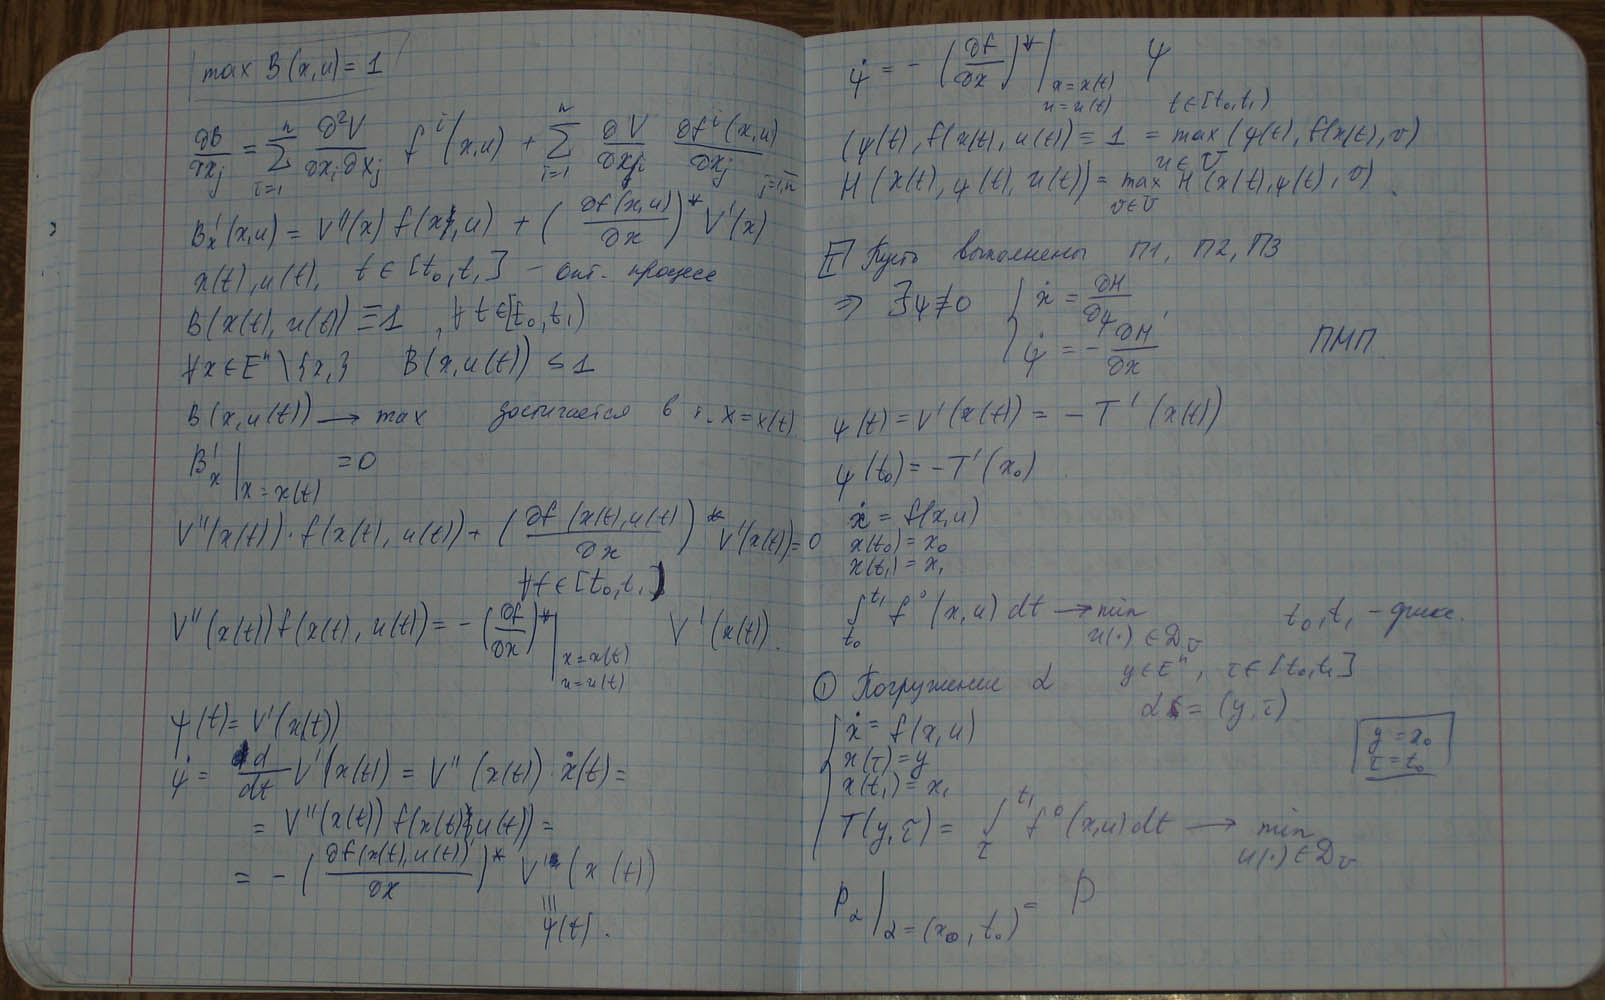 max B(x,u) = 1
∂B/∂x_j = Σ_{i=1}^{n} ∂²V/∂x_i∂x_j f^i(x,u) + Σ_{i=1}^{n} ∂V/∂x_i ∂f^i(x,u)/∂x_j j=1,n
B'_x(x,u) = V''(x) f(x,u) + (∂f(x,u)/∂x)* V'(x)
x(t), u(t), t ∈ [t₀,t₁] – опт. процесс
B(x(t), u(t)) ≡ 1, ∀t∈[t₀,t₁)
∀x∈Eⁿ\{x₁} B(x,u(t)) ≤ 1
B(x,u(t)) → max достигается в т. x=x(t)
B'_x |_{x=x(t)} = 0
V''(x(t))·f(x(t),u(t)) + (∂f(x(t),u(t))/∂x)* V'(x(t)) = 0
∀t∈[t₀,t₁)
V''(x(t)) f(x(t),u(t)) = -(∂f/∂x)* |_{x=x(t) u=u(t)} V'(x(t)).
ψ(t) = V'(x(t))
ψ̇ = d/dt V'(x(t)) = V''(x(t))·ẋ(t) =
= V''(x(t)) f(x(t),u(t)) =
= -(∂f(x(t),u(t))/∂x)* V'(x(t))
ψ(t).
ψ̇ = -(∂f/∂x)* |_{x=x(t) u=u(t)} ψ
t∈[t₀,t₁)
(ψ(t), f(x(t),u(t)) ≡ 1 = max_{u∈U} (ψ(t), f(x(t),v)
H(x(t),ψ(t),u(t)) = max_{v∈U} H(x(t),ψ(t),v).
Пусть выполнены П1, П2, П3
⇒ ∃ψ≠0 { ẋ = ∂H/∂ψ
ψ̇ = -∂H/∂x ПМП
ψ(t) = V'(x(t)) = -T'(x(t))
ψ(t₀) = -T'(x₀)
ẋ = f(x,u)
x(t₀) = x₀
x(t₁) = x₁
∫_{t₀}^{t₁} f⁰(x,u)dt → min_{u(·)∈D_U} t₀,t₁ – фикс.
① Погружение α y∈Eⁿ, τ∈[t₀,t₁]
α = (y,τ)
{ ẋ = f(x,u)
x(τ) = y
x(t₁) = x₁
y = x₀
τ = t₀
T(y,τ) = ∫_{τ}^{t₁} f⁰(x,u)dt → min_{u(·)∈D_U}
P_α |_{α=(x₀,t₀)} = P